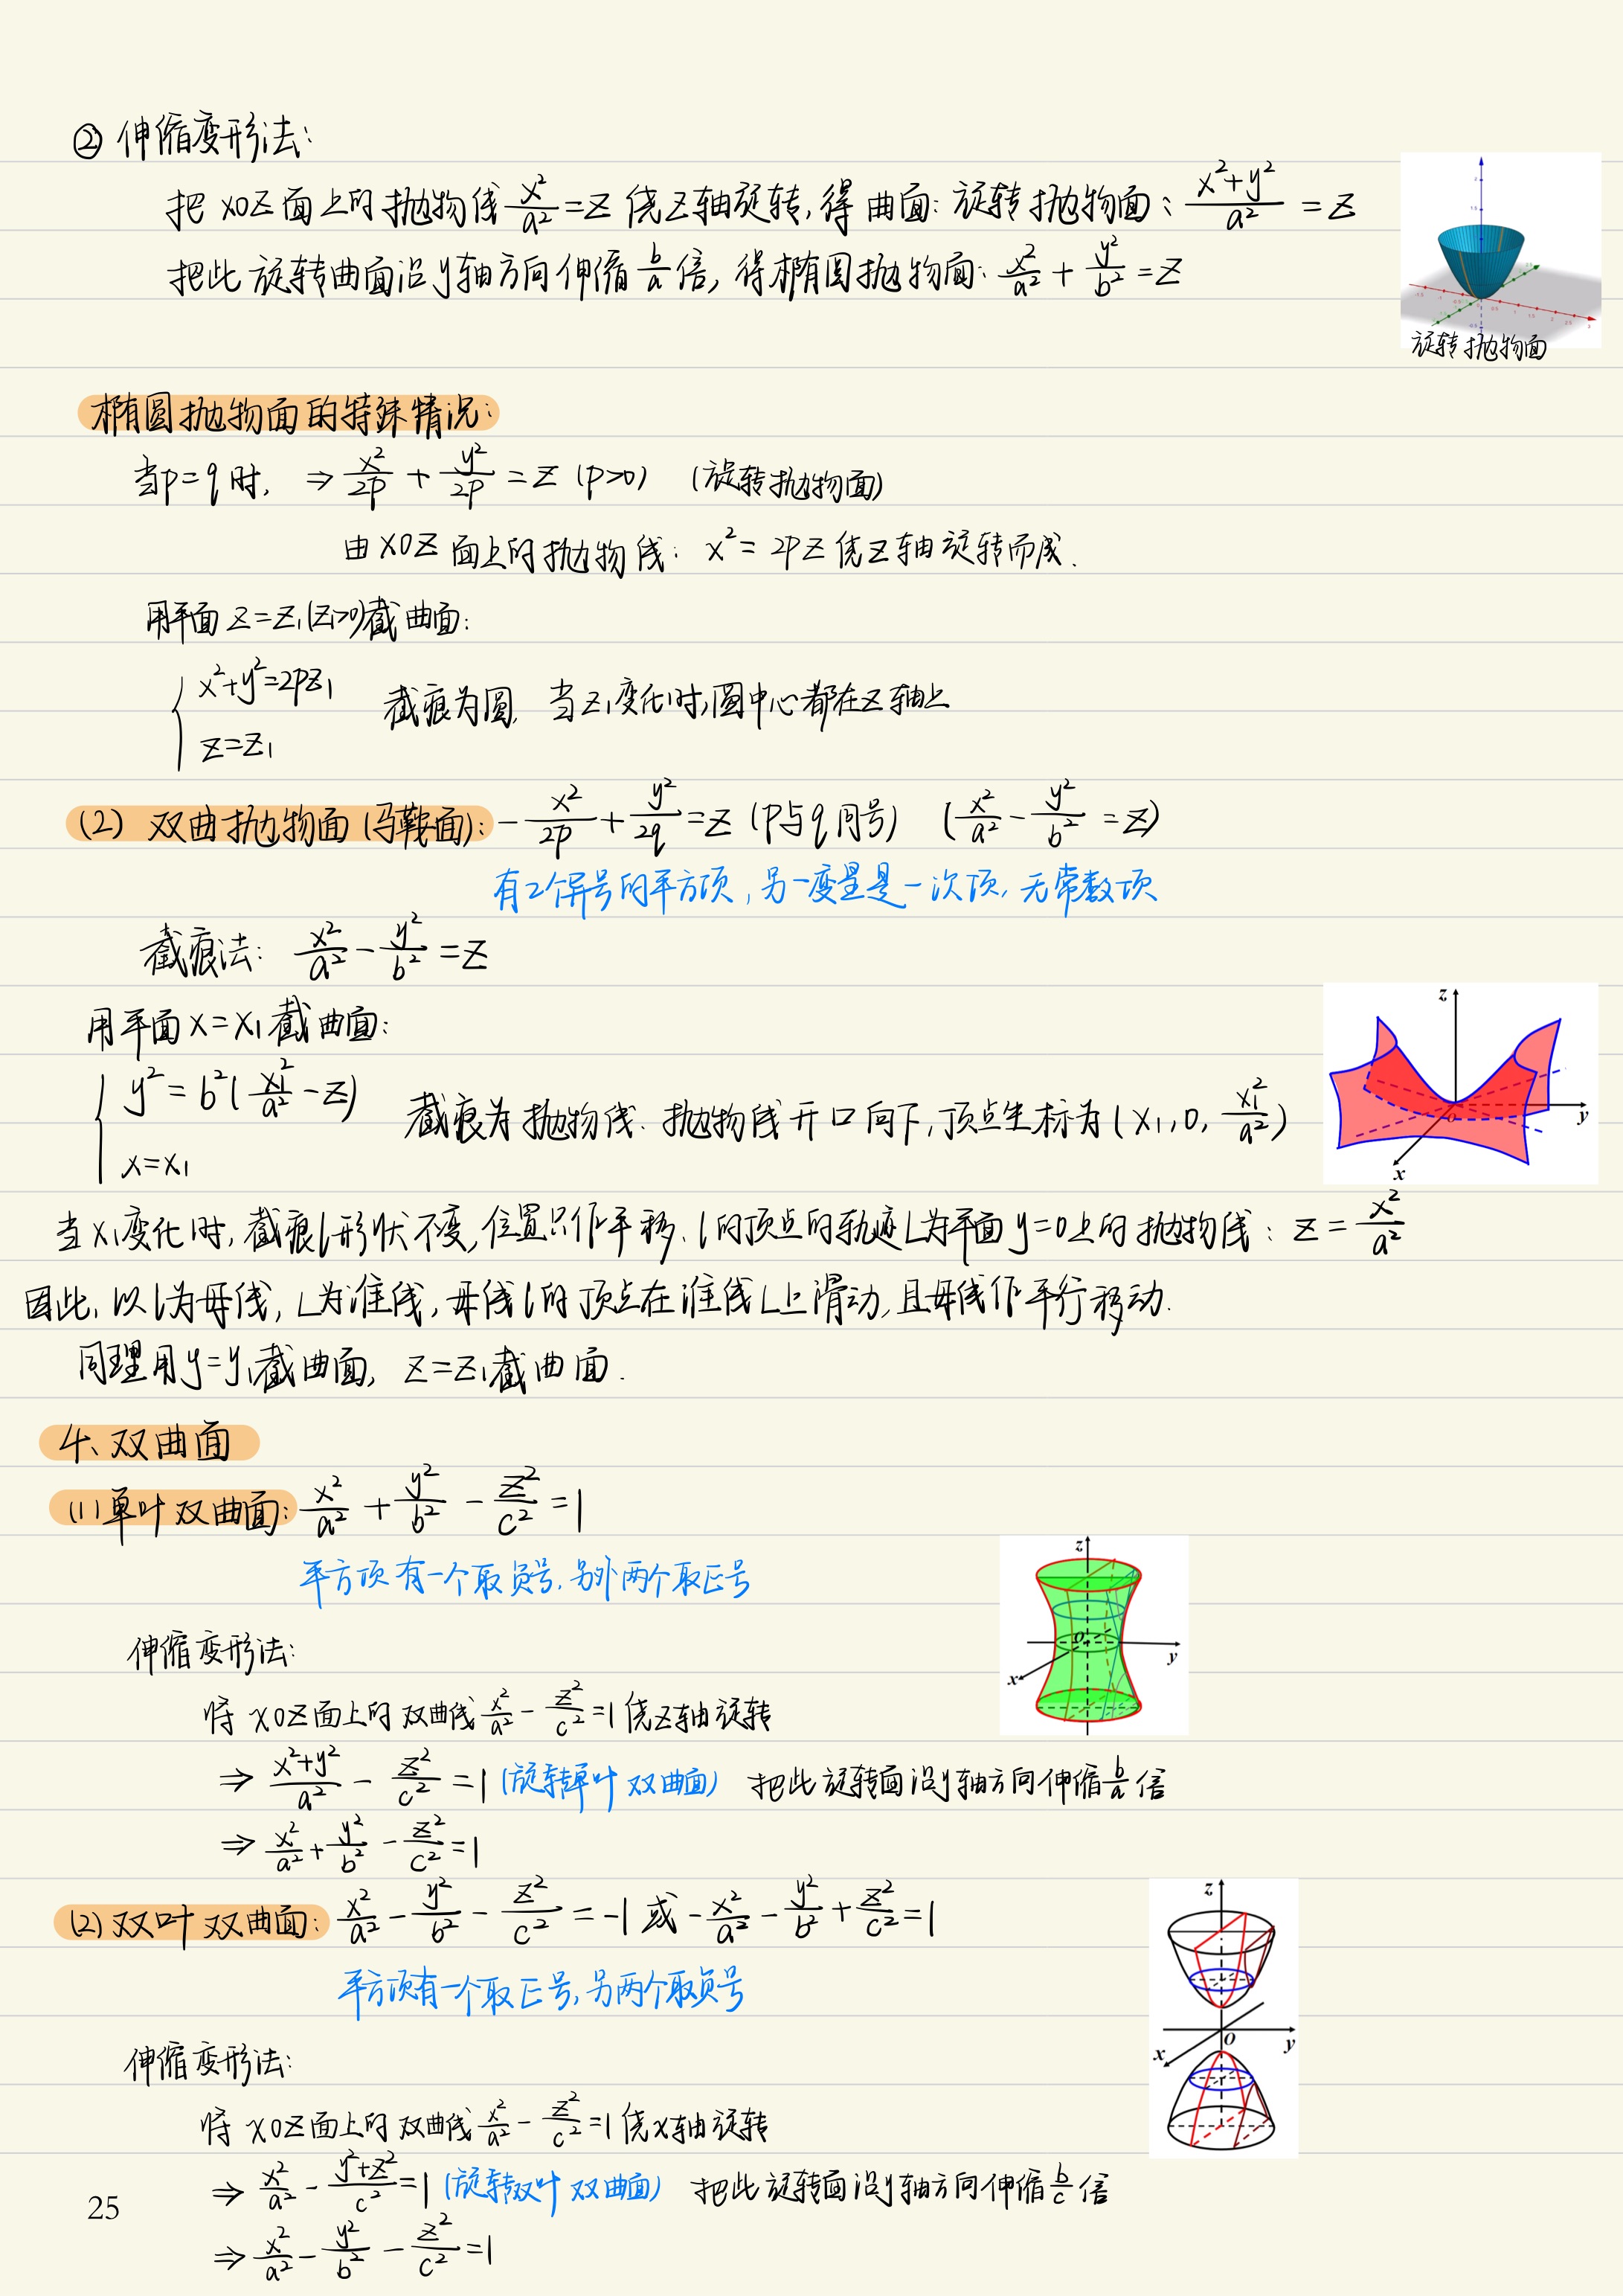 ② 伸缩变形法:
把 xOz 面上的抛物线 x²/a² = z 绕z轴旋转, 得曲面: 旋转抛物面: (x²+y²)/a² = z
把此旋转曲面沿y轴方向伸缩 b/a 倍, 得椭圆抛物面: x²/a² + y²/b² = z
旋转抛物面
椭圆抛物面的特殊情况:
当p=q时, ⇒ x²/2p + y²/2p = z (p>0) (旋转抛物面)
由 xOz 面上的抛物线: x² = 2pz 绕z轴旋转而成.
用平面 z=z₁(z₁>0)截曲面:
{ x²+y²=2pz₁
z=z₁
截痕为圆, 当z₁变化时,圆中心都在z轴上
(2) 双曲抛物面(马鞍面): -x²/2p + y²/2q = z (p与q同号) (x²/a² - y²/b² = z)
有2个异号的平方项, 另一变量是一次项, 无常数项
截痕法: x²/a² - y²/b² = z
用平面 x=x₁ 截曲面:
{ y² = b²(x₁²/a² - z)
x=x₁
截痕为抛物线. 抛物线开口向下, 顶点坐标为 (x₁, 0, x₁²/a²)
z
o
y
x
当x₁变化时, 截痕l形状不变, 位置只作平移. l的顶点的轨迹L为平面y=0上的抛物线: z = x²/a²
因此, 以l为母线, L为准线, 母线l的顶点在准线L上滑动, 且母线作平行移动.
同理用y=y₁截曲面, z=z₁截曲面.
4、双曲面
(1) 单叶双曲面: x²/a² + y²/b² - z²/c² = 1
平方项有一个取负号, 另外两个取正号
z
o
y
x
伸缩变形法:
将 xOz面上的双曲线 x²/a² - z²/c² = 1 绕z轴旋转
⇒ (x²+y²)/a² - z²/c² = 1 (旋转单叶双曲面) 把此旋转面沿y轴方向伸缩 b/a 倍
⇒ x²/a² + y²/b² - z²/c² = 1
(2) 双叶双曲面: x²/a² - y²/b² - z²/c² = -1 或 -x²/a² - y²/b² + z²/c² = 1
平方项有一个取正号, 另两个取负号
z
o
y
x
伸缩变形法:
将 xOz面上的双曲线 x²/a² - z²/c² = 1 绕x轴旋转
⇒ x²/a² - (y²+z²)/c² = 1 (旋转双叶双曲面) 把此旋转面沿y轴方向伸缩 b/c 倍
25
⇒ x²/a² - y²/b² - z²/c² = 1